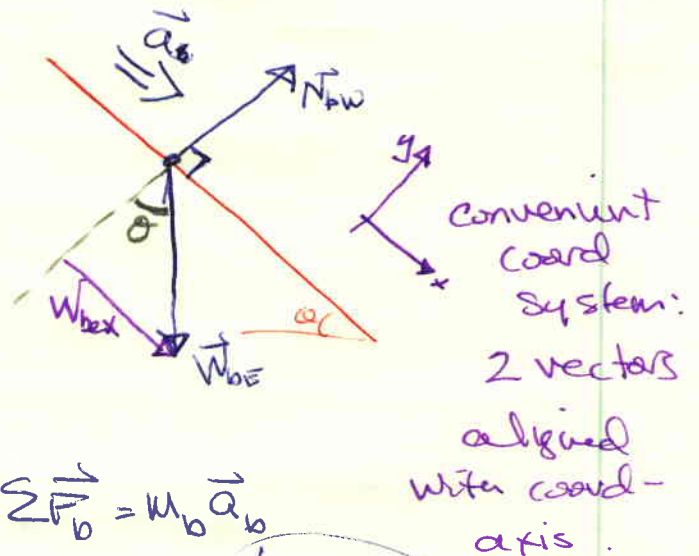 a⃗_b
N⃗_bW
y
x
θ
W_bEx
W⃗_bE
θ
convenient
coord
system:
2 vectors
aligned
with coord-
axis.
ΣF⃗_b = m_b a⃗_b